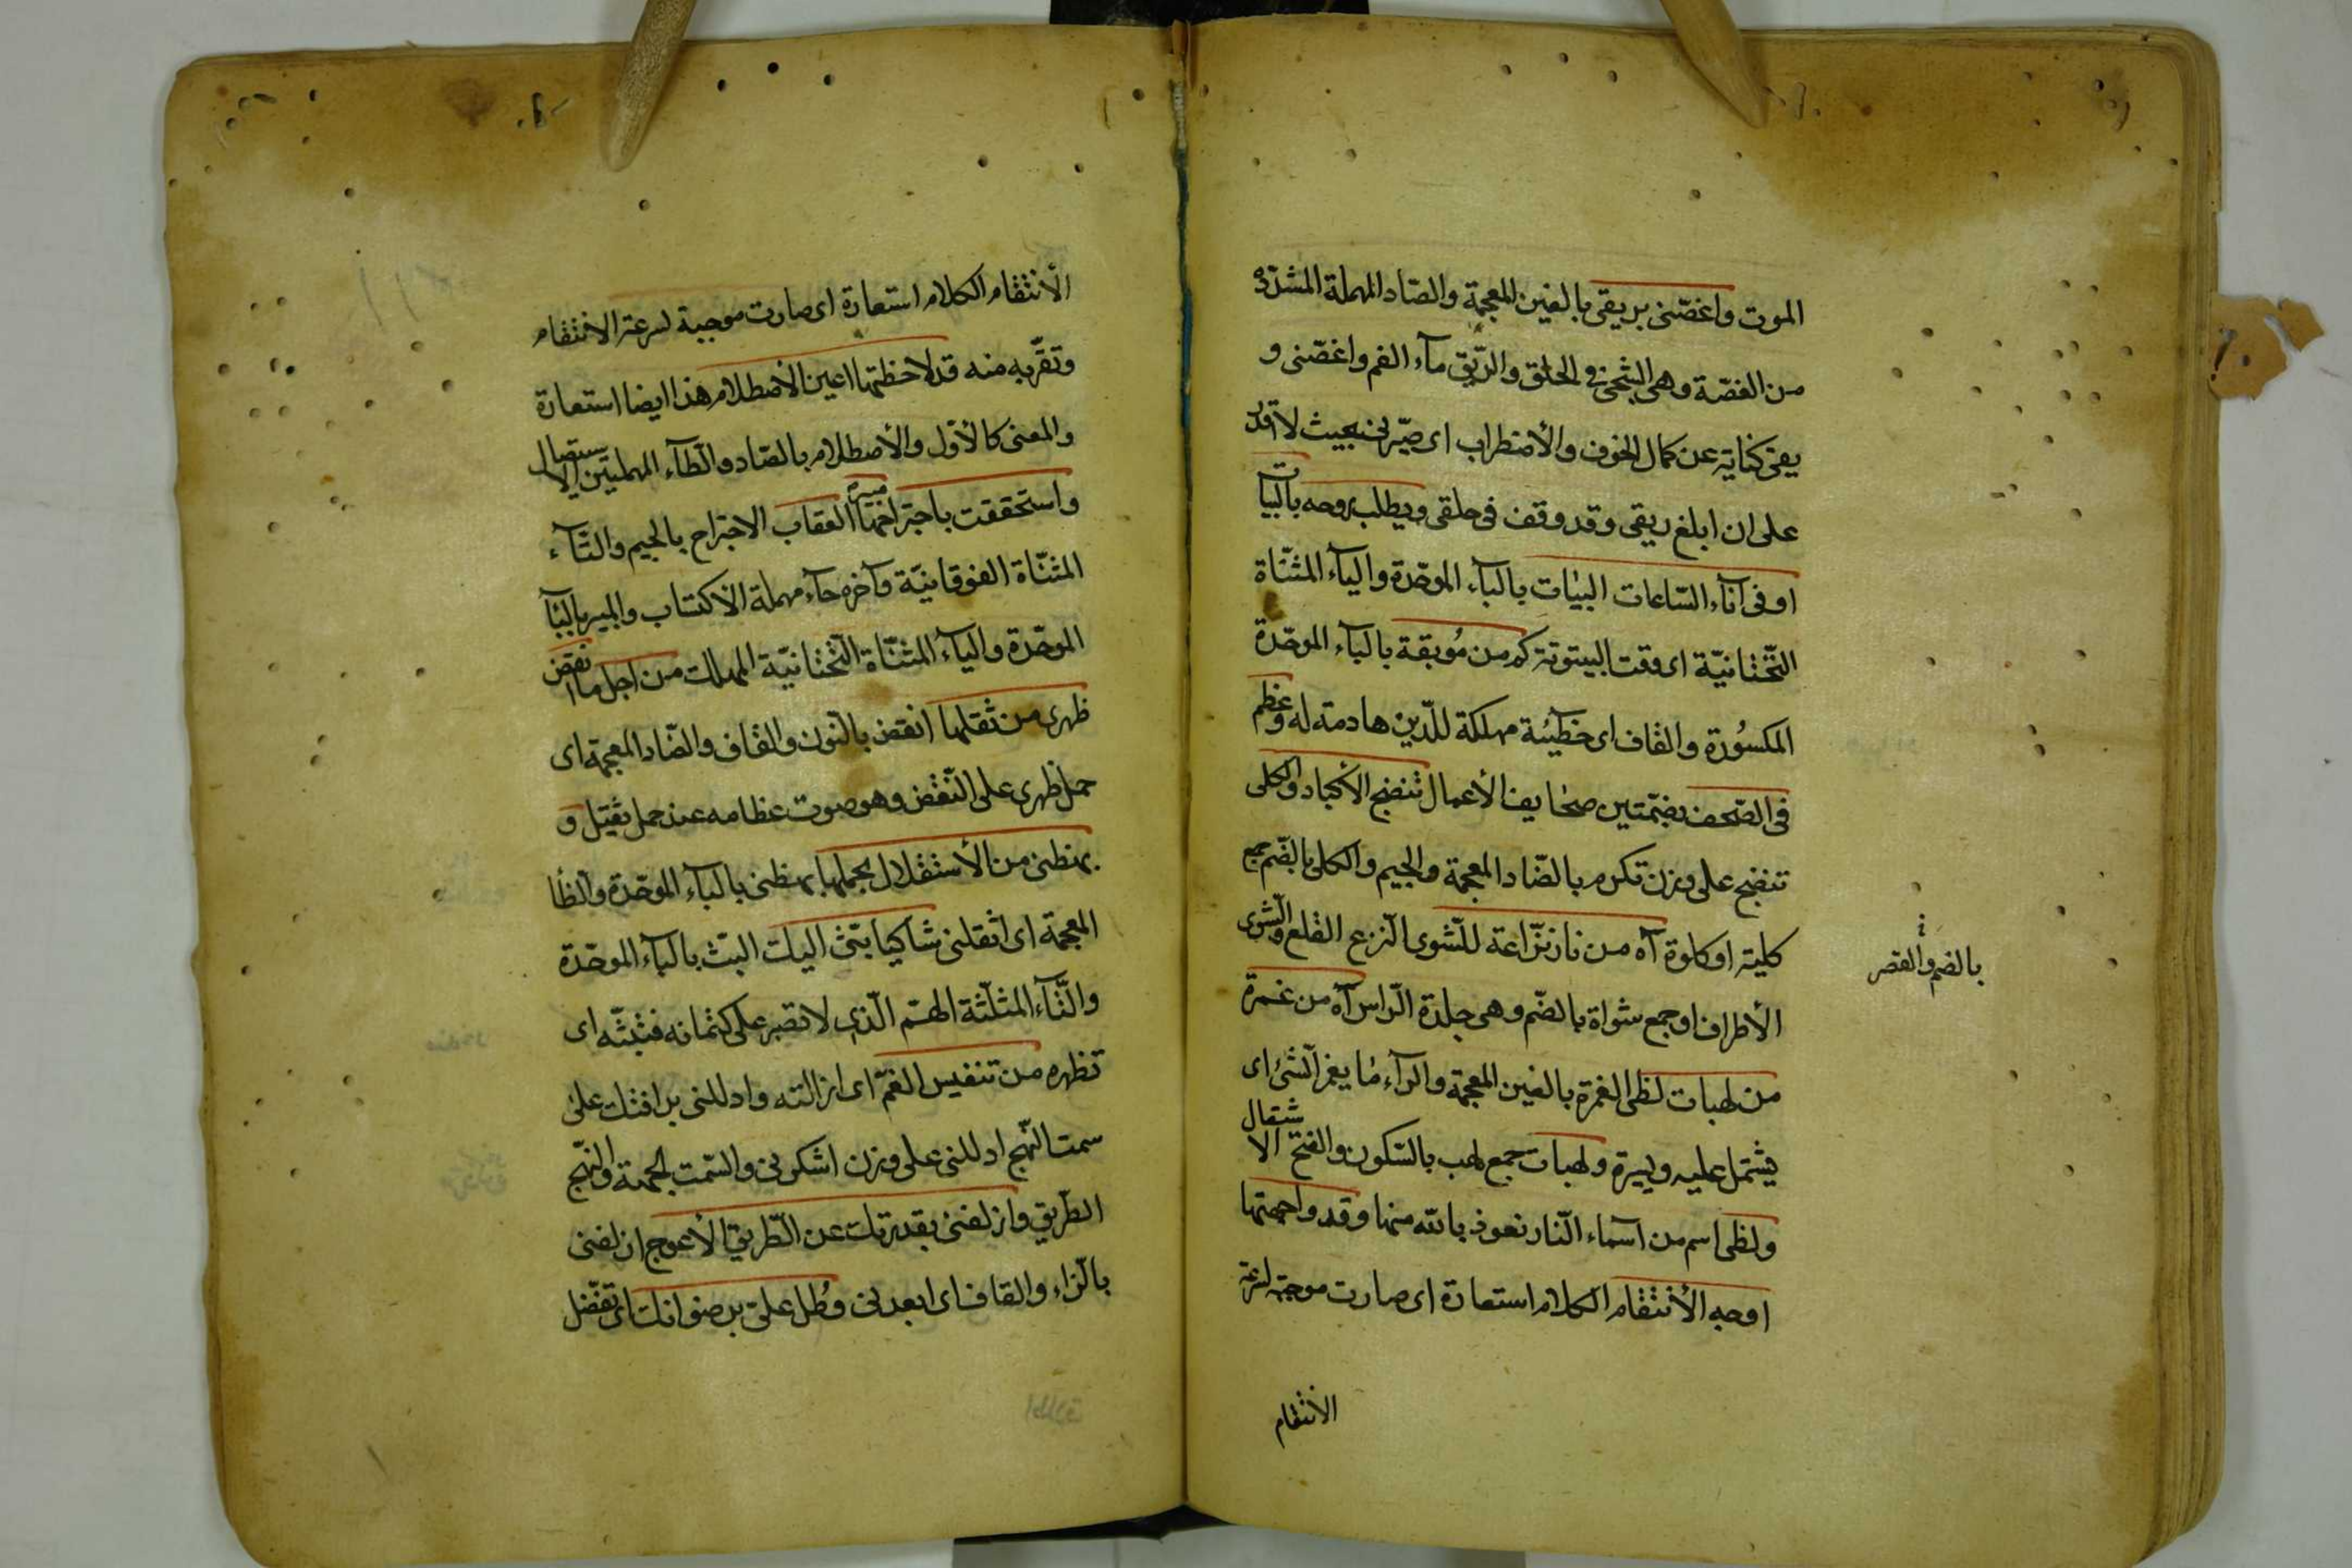 الموت واغصّنى بريقى بالغين المعجمة والصّاد المهملة المشدّدة
من الغصّة وهى الشجى فى الحلق والرّيق مآء الفم واغصّنى و
يقى كناية عن كمال الخوف والأضطراب اى صيّرنى بحيث لا اقدر
على ان ابلغ ريقى وقد وقف فى حلقى ويطلب روحه بالبيات
او فى آنآء السّاعات البيات بالبآء الموحّدة واليآء المثنّاة
التّحتانيّة اى وقت البيتوتة كم من مُوبقة بالبآء الموحّدة
المكسُورة والقاف اى خطيئة مهلكة للدّين هادمة له وعظم
فى الصّحف بضمّتين صحايف الأعمال تنضج الأكباد والكلى
تنضج على وزن تكرم بالضّاد المعجمة والجيم والكلى بالضّم جمع
كلية او كلوة آه من نار نزّاعة للشّوى النزع القلع والشوى
بالضم والقصر
الأطراف او جمع شواة بالضّم وهى جلدة الرّاس آه من غمرة
من لهبات لظى الغمرة بالغين المعجمة والرآء ما يغمر الشئ اى
يشتمل عليه ويستره ولهبات جمع لهب بالسّكون والفتح الاشتعال
ولظى اسم من اسمآء النّار نعوذ بالله منها وقد واجهتها
اوجه الأنتقام الكلام استعارة اى صارت موجبة لسرعة
الأنتقام
الأنتقام الكلام استعارة اى صارت موجبة لسرعة الانتقام
وتقرّبه منه قد لاحظتها اعين الأصطلام هذا ايضا استعارة
والمعنى كالأوّل والأصطلام بالصّاد والطّآء المهملتين الاستيصال
واستحققت باجتراحها مبير العقاب الاجتراح بالجيم والتآء
المثنّاة الفوقانيّة وآخره حآء مهملة الاكتساب والمبير بالبآ
الموحّدة واليآء المثنّاة التّحتانيّة المهلك من اجل ما انقض
ظهرى من ثقلها انقض بالنّون والقاف والضّاد المعجمة اى
حمل ظهرى على النّقض وهو صوت عظامه عند حمل ثقيل و
بهظنى من الأستقلال بحملها بهظنى بالبآء الموحّدة والظا
المعجمة اى اثقلنى شاكيا بثى اليك البثّ بالبآء الموحّدة
والثّآء المثلّثة الهمّ الّذى لا تصبر على كتمانه فتبثّه اى
تظهره من تنفيس الغمّ اى ازالته وادللنى برافتك على
سمت النّهج ادللنى على وزن اشكرنى والسّمت الجهة والنهج
الطّريق وازلفنى بقدرتك عن الطّريق الأعوج ازلفنى
بالزّاء والقاف اى ابعدنى وطُل علىّ برضوانك اى تفضّل